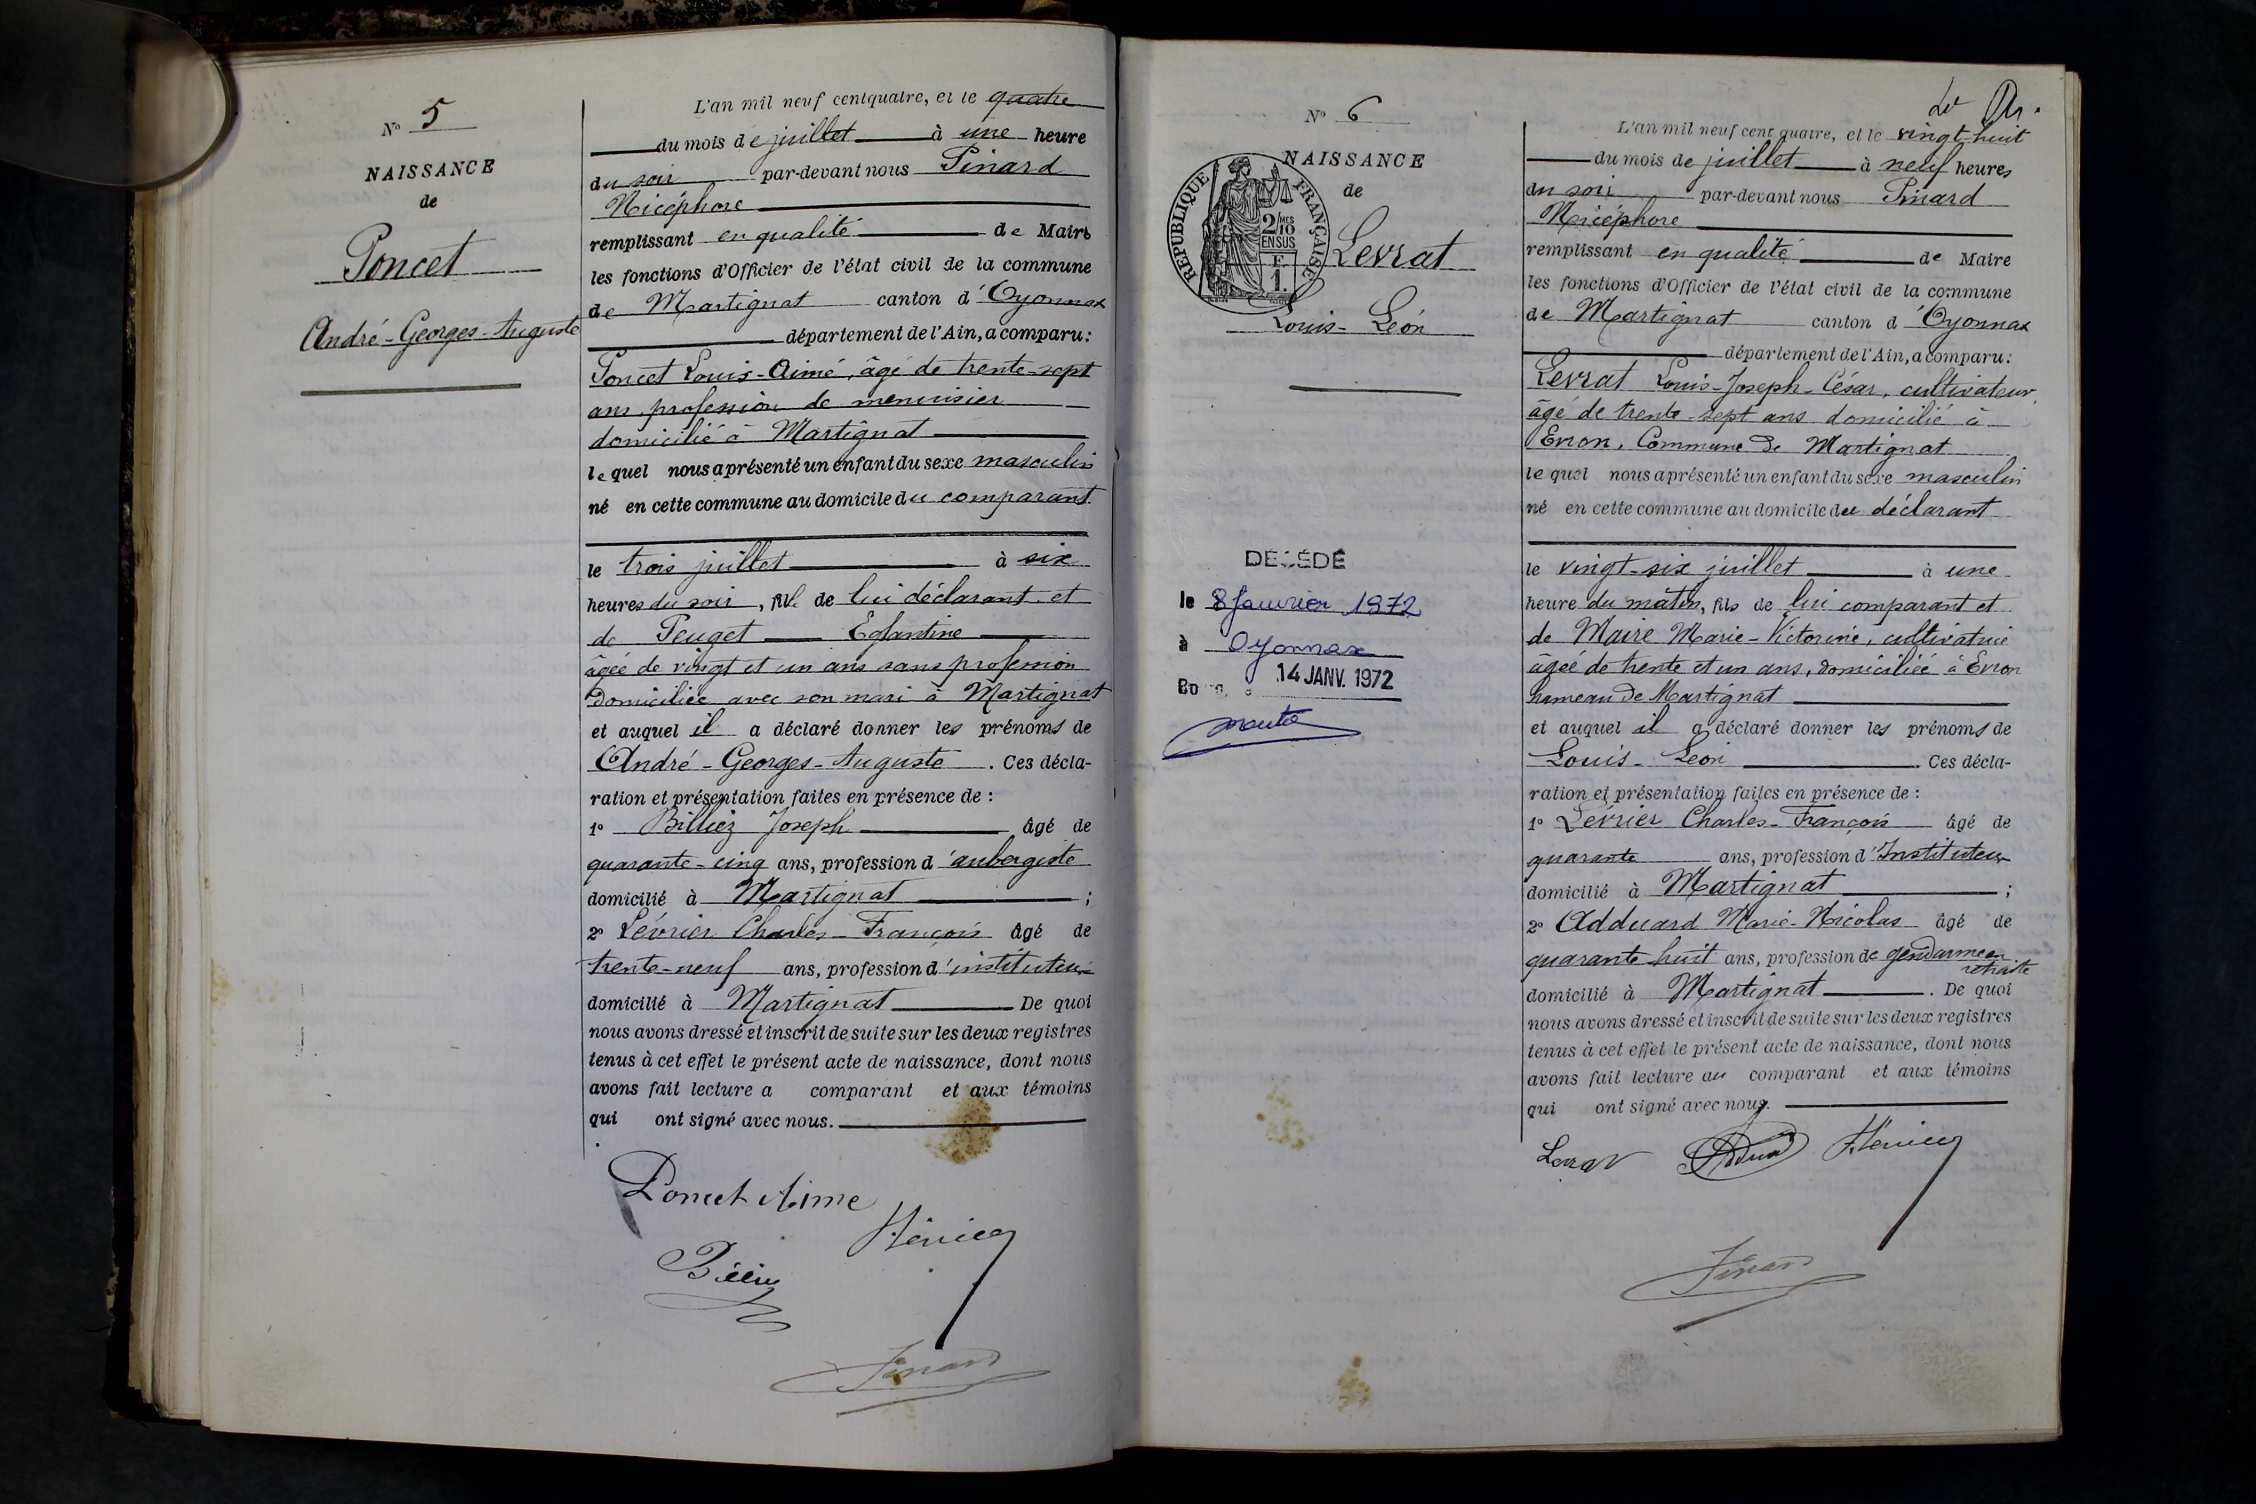 N° 5
NAISSANCE
de
Poncet
André-Georges-Auguste
L'an mil neuf centquatre, et le quatre
du mois de juillet à une heure
du soir par-devant nous Pinard
Nicéphore
remplissant en qualité de Maire
les fonctions d'Officier de l'état civil de la commune
de Martignat canton d'Oyonnax
département de l'Ain, a comparu:
Poncet Louis-Aimé, âgé de trente-sept
ans, profession de menuisier
domicilié à Martignat
lequel nous a présenté un enfant du sexe masculin
né en cette commune au domicile du comparant
le trois juillet à six
heures du soir, fils de lui déclarant et
de Peuget Eglantine
âgée de vingt et un ans sans profession
domiciliée avec son mari à Martignat
et auquel il a déclaré donner les prénoms de
André-Georges-Auguste. Ces décla-
ration et présentation faites en présence de :
1° Billiez Joseph âgé de
quarante-cinq ans, profession d'aubergiste
domicilié à Martignat ;
2° Lévrier Charles-François âgé de
trente-neuf ans, profession d'instituteur
domicilié à Martignat De quoi
nous avons dressé et inscrit de suite sur les deux registres
tenus à cet effet le présent acte de naissance, dont nous
avons fait lecture a comparant et aux témoins
qui ont signé avec nous.
Poncet Aime
Pinard
N° 6
NAISSANCE
de
RÉPUBLIQUE FRANÇAISE
2/10 MES
EN SUS
F.
1.
Levrat
Louis-Léon
DÉCÉDÉ
le 8 Janvier 1972
à Oyonnax
14 JANV. 1972
L'an mil neuf cent quatre, et le vingt-huit
du mois de juillet à neuf heures
du soir par-devant nous Pinard
Nicéphore
remplissant en qualité de Maire
les fonctions d'Officier de l'état civil de la commune
de Martignat canton d'Oyonnax
département de l'Ain, a comparu:
Levrat Louis-Joseph-César, cultivateur,
âgé de trente-sept ans domicilié à
Evron, Commune de Martignat
lequel nous a présenté un enfant du sexe masculin
né en cette commune au domicile du déclarant
le vingt-six juillet à une
heure du matin, fils de lui comparant et
de Maire Marie-Victorine, cultivatrice
âgée de trente et un ans, domiciliée à Evron
hameau de Martignat
et auquel il a déclaré donner les prénoms de
Louis-Léon. Ces décla-
ration et présentation faites en présence de :
1° Lévrier Charles-François âgé de
quarante ans, profession d'Instituteur
domicilié à Martignat ;
2° Adduard Marie-Nicolas âgé de
quarante huit ans, profession de gendarme en
retraite
domicilié à Martignat. De quoi
nous avons dressé et inscrit de suite sur les deux registres
tenus à cet effet le présent acte de naissance, dont nous
avons fait lecture au comparant et aux témoins
qui ont signé avec nous.
Levrat
Pinard